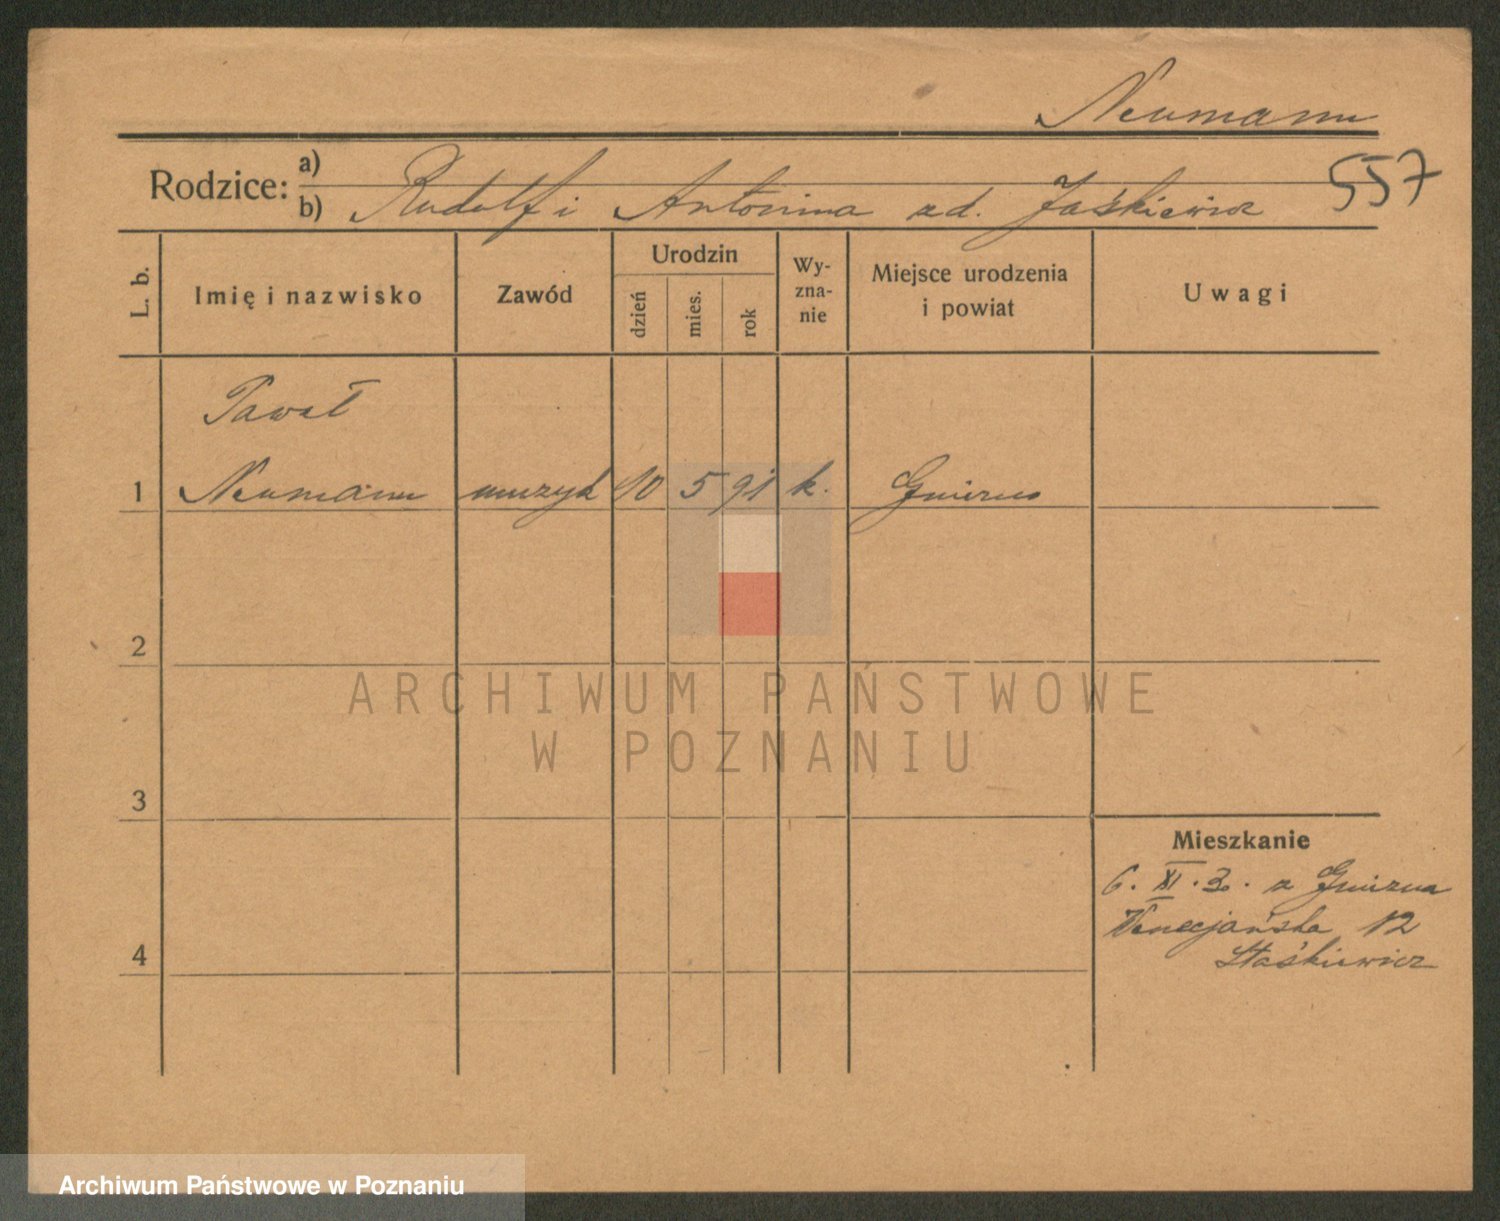 Neumann
557
Rodzice: a)
b) Rudolf i Antonina zd. Jaśkiewicz
L. b.
Imię i nazwisko
Zawód
Urodzin
dzień
mies.
rok
Wy-
zna-
nie
Miejsce urodzenia
i powiat
Uwagi
Paweł
1 Neumann muzyk 10 5 91 k. Gniezno
2
3
4
Mieszkanie
6. XI. 30. z Gniezna
Wenecjańska 12
ARCHIWUM PAŃSTWOWE
W POZNANIU
Archiwum Państwowe w Poznaniu